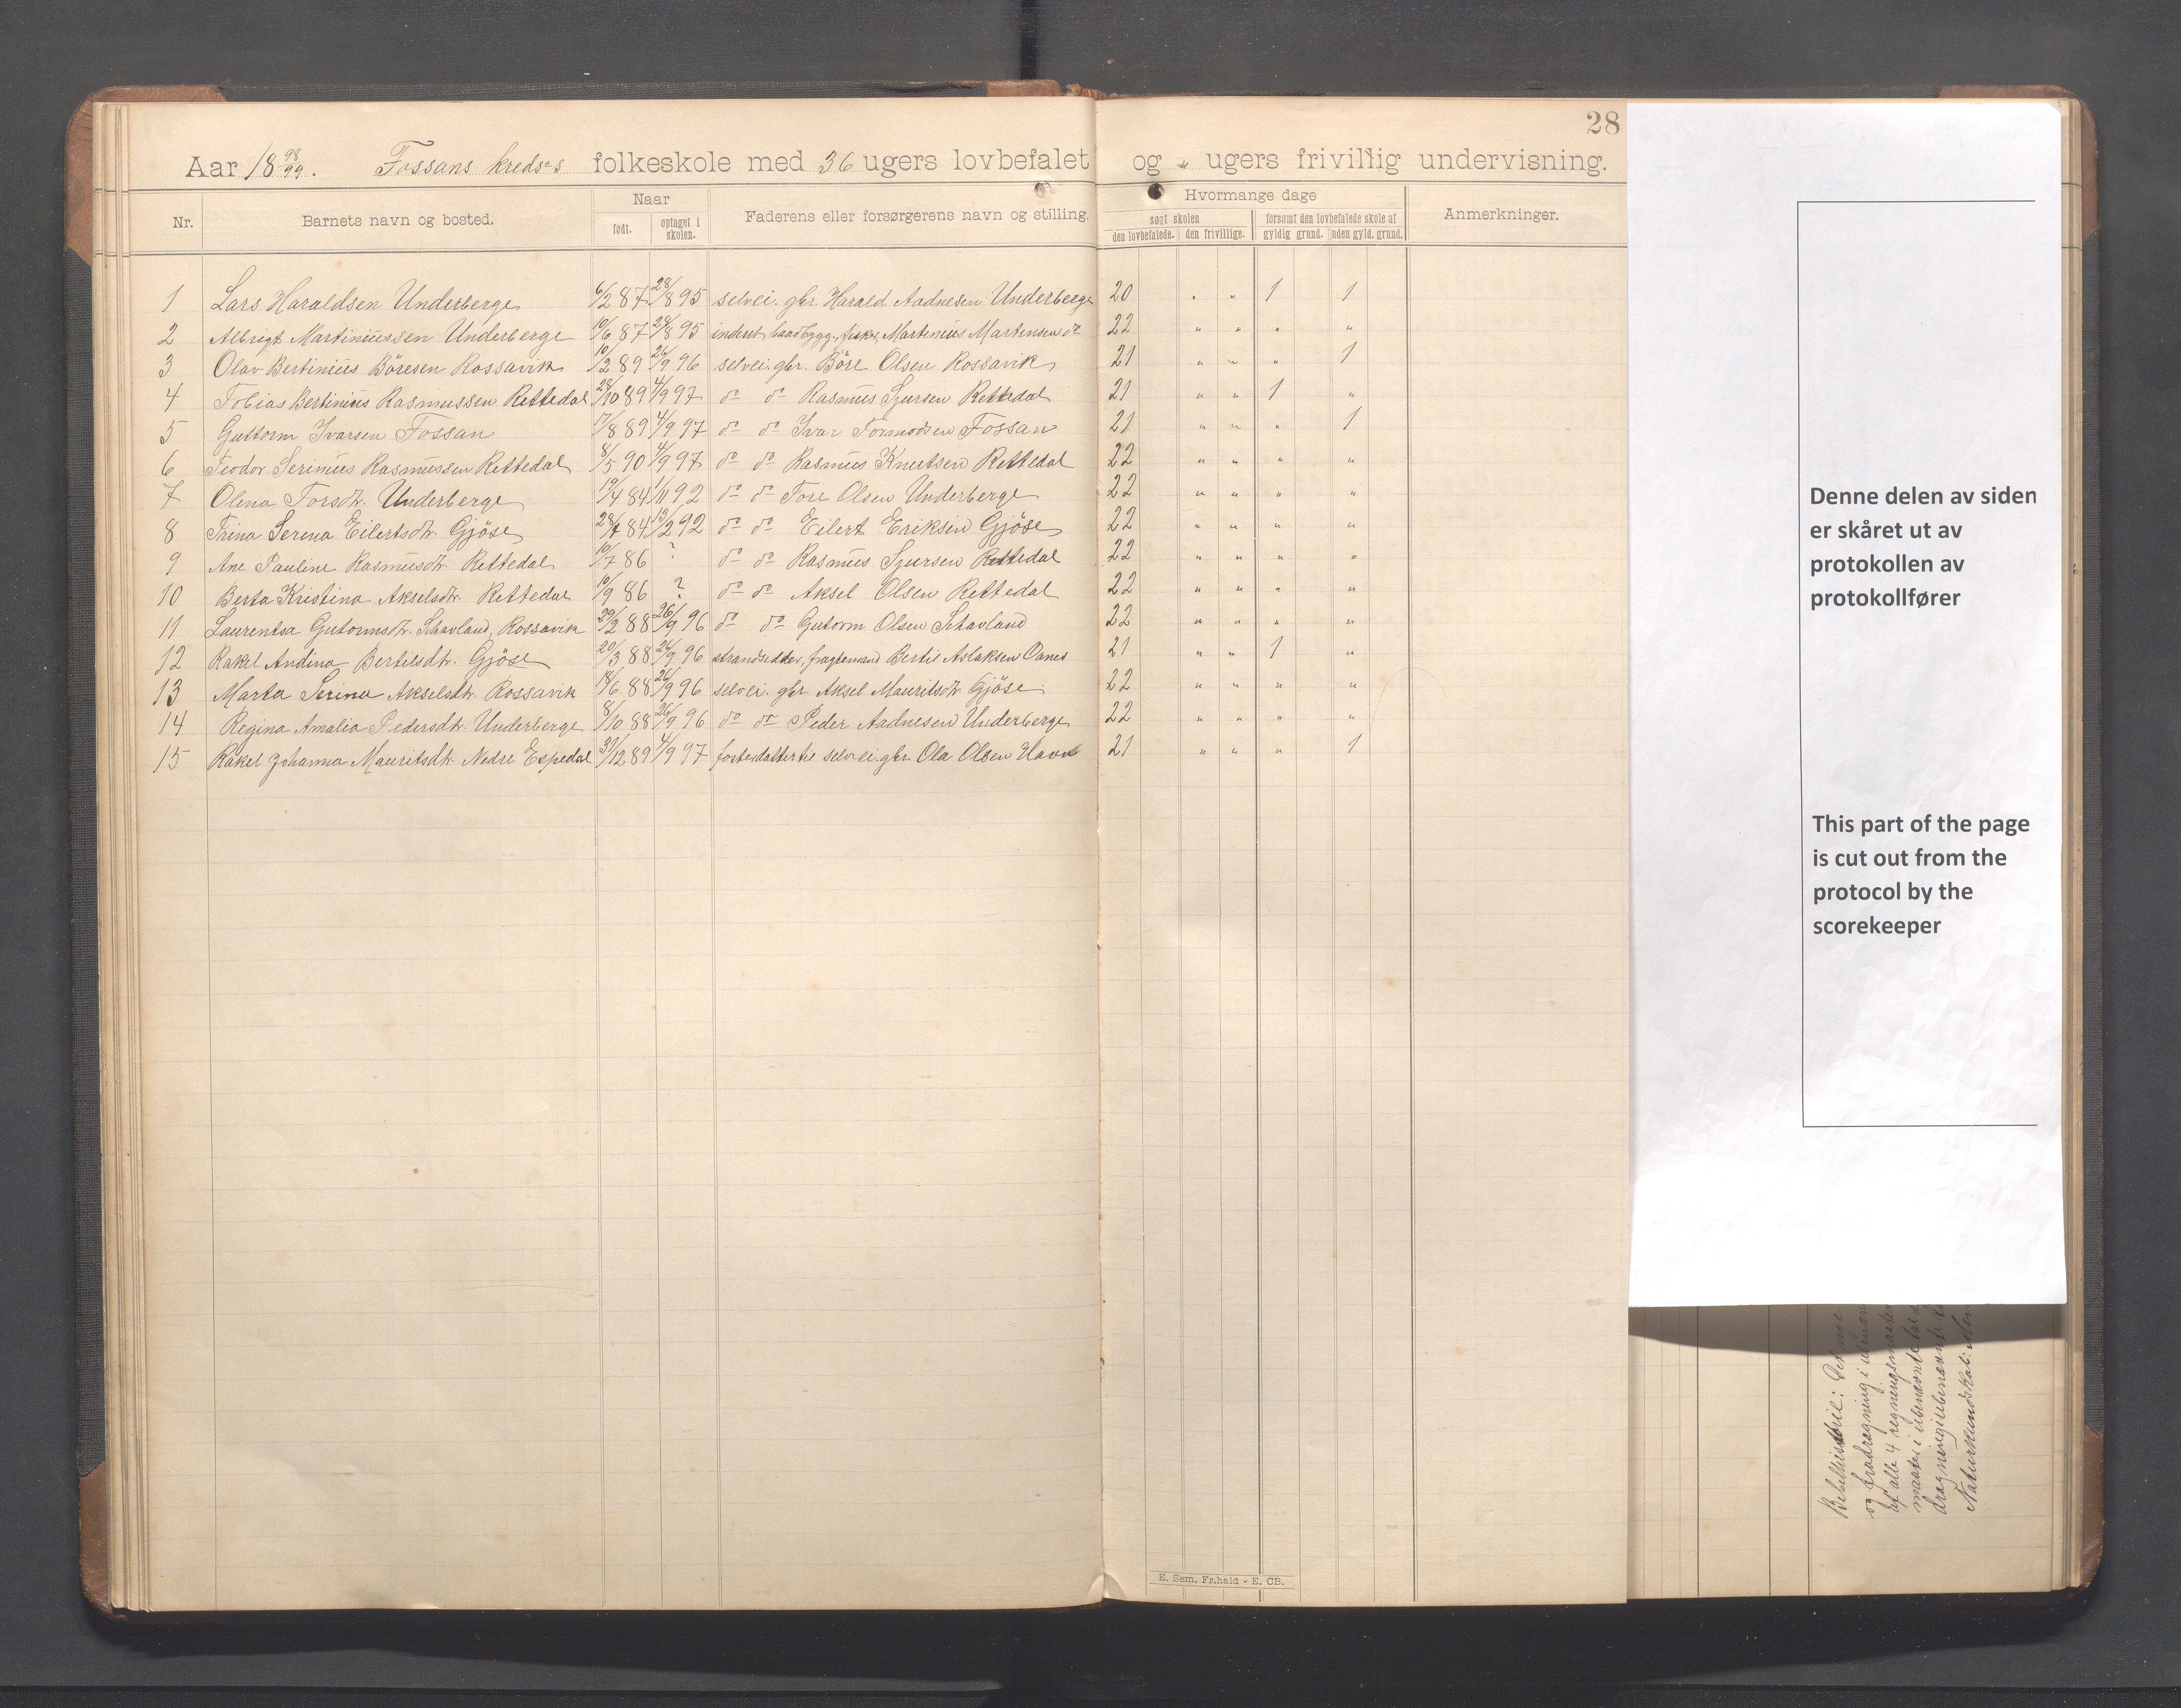 28
Aar 18 98/99. Fossans kreds's folkeskole med 36 ugers lovbefalet og " ugers frivillig undervisning.
Nr. Barnets navn og bosted. Naar Faderens eller forsørgerens navn og stilling. Hvormange dage Anmerkninger.
født. optaget i skolen. søgt skolen forsømt den lovbefalede skole af
den lovbefalede. den frivillige. gyldig grund. uden gyld. grund.
1 Lars Haraldsen Underberge 6/2 87 28/8 95 selvei. gbr. Harald Aadnesen Underberge 20 " " 1 1
2 Albrigt Martiniussen Underberge 10/6 87 28/8 95 inderst, baadbygg., fisker, Martinius Martensen do 22 " " " "
3 Olav Bertinius Böresen Rossavik 10/2 89 26/9 96 selvei. gbr. Böre Olsen Rossavik 21 " " " 1
4 Tobias Bertinius Rasmussen Rettedal 28/10 89 4/9 97 do do Rasmus Sjursen Rettedal 21 " " 1 "
5 Guttorm Ivarsen Fossan 17/8 89 4/9 97 do do Ivar Tormodsen Fossan 21 " " " 1
6 Teodor Serinius Rasmussen Rettedal 8/5 90 4/9 97 do do Rasmus Knutsen Rettedal 22 " " " "
7 Olena Torsdtr. Underberge 19/4 84 1/11 92 do do Tore Olsen Underberge 22 " " " "
8 Trina Serena Eilertsdtr. Gjöse 28/7 84 13/2 92 do do Eilert Eriksen Gjöse 22 " " " "
9 Ane Pauline Rasmusdtr. Rettedal 10/7 86 ? do do Rasmus Sjursen Rettedal 22 " " " "
10 Berta Kristina Akselsdtr. Rettedal 10/9 86 ? do do Aksel Olsen Rettedal 22 " " " "
11 Laurentsa Gutormsdtr. Schavland, Rossavik 29/2 88 26/9 96 do do Gutorm Olsen Schavland 22 " " " "
12 Rakel Andina Bertilsdtr. Gjöse 20/3 88 26/9 96 strandsidder, fragtemand Bertil Aslaksen Oanes 21 " " 1 "
13 Marta Serina Akselsdtr. Rossavik 18/6 88 26/9 96 selvei. gbr. Aksel Mauritsdtr. Gjöse 22 " " " "
14 Regina Amalia Pedersdtr. Underberge 8/10 88 26/9 96 do do Peder Aadnesen Underberge 22 " " " "
15 Rakel Johanna Mauritsdtr. Nedre Espedal 31/12 89 4/9 97 fosterdatter til selvei. gbr. Ola Olsen Havn 21 " " " 1
E. Sem, Fr.hald - E. CB.
Denne delen av siden
er skåret ut av
protokollen av
protokollfører
This part of the page
is cut out from the
protocol by the
scorekeeper
Bibelhistorie:
og fradragning i
af alle 4 regningsmaater
maater i ubenævnte tal
dragning i ubenævnte
Naturkundskab: